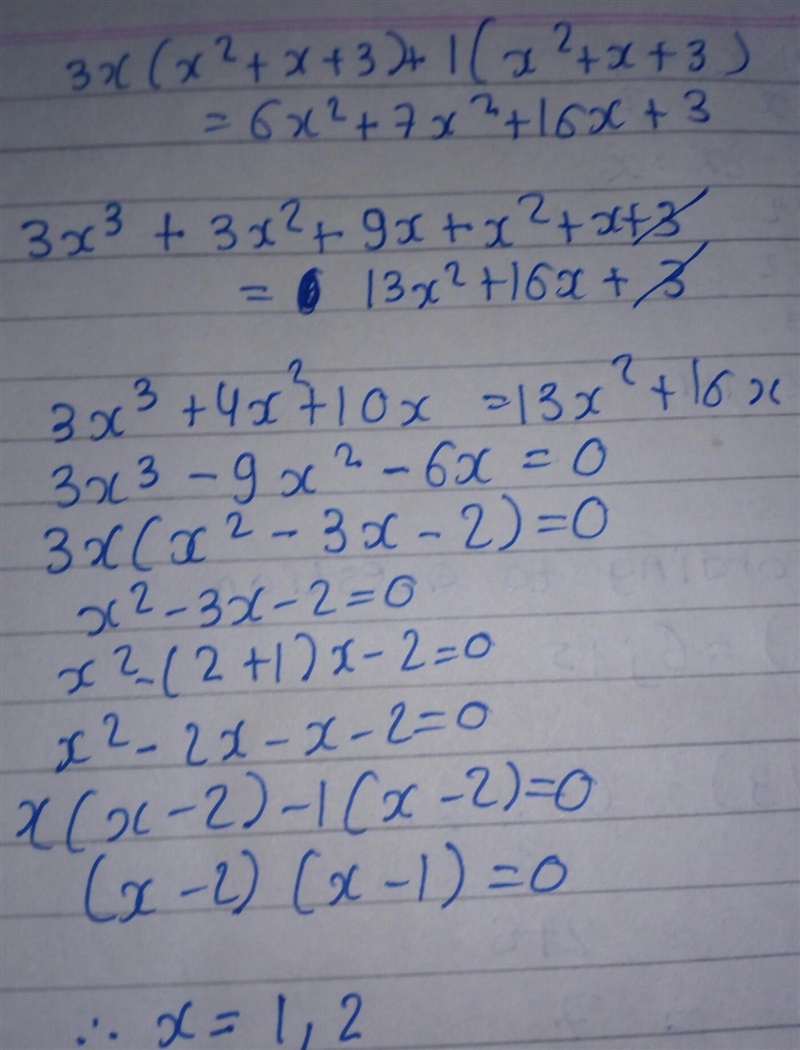 3x(x²+x+3)+1(x²+x+3)
=6x²+7x²+16x+3
3x³+3x²+9x+x²+x+3
= 13x²+16x+3
3x³+4x²+10x =13x²+16x
3x³-9x²-6x=0
3x(x²-3x-2)=0
x²-3x-2=0
x²-(2+1)x-2=0
x²-2x-x-2=0
x(x-2)-1(x-2)=0
(x-2)(x-1)=0
∴ x=1,2